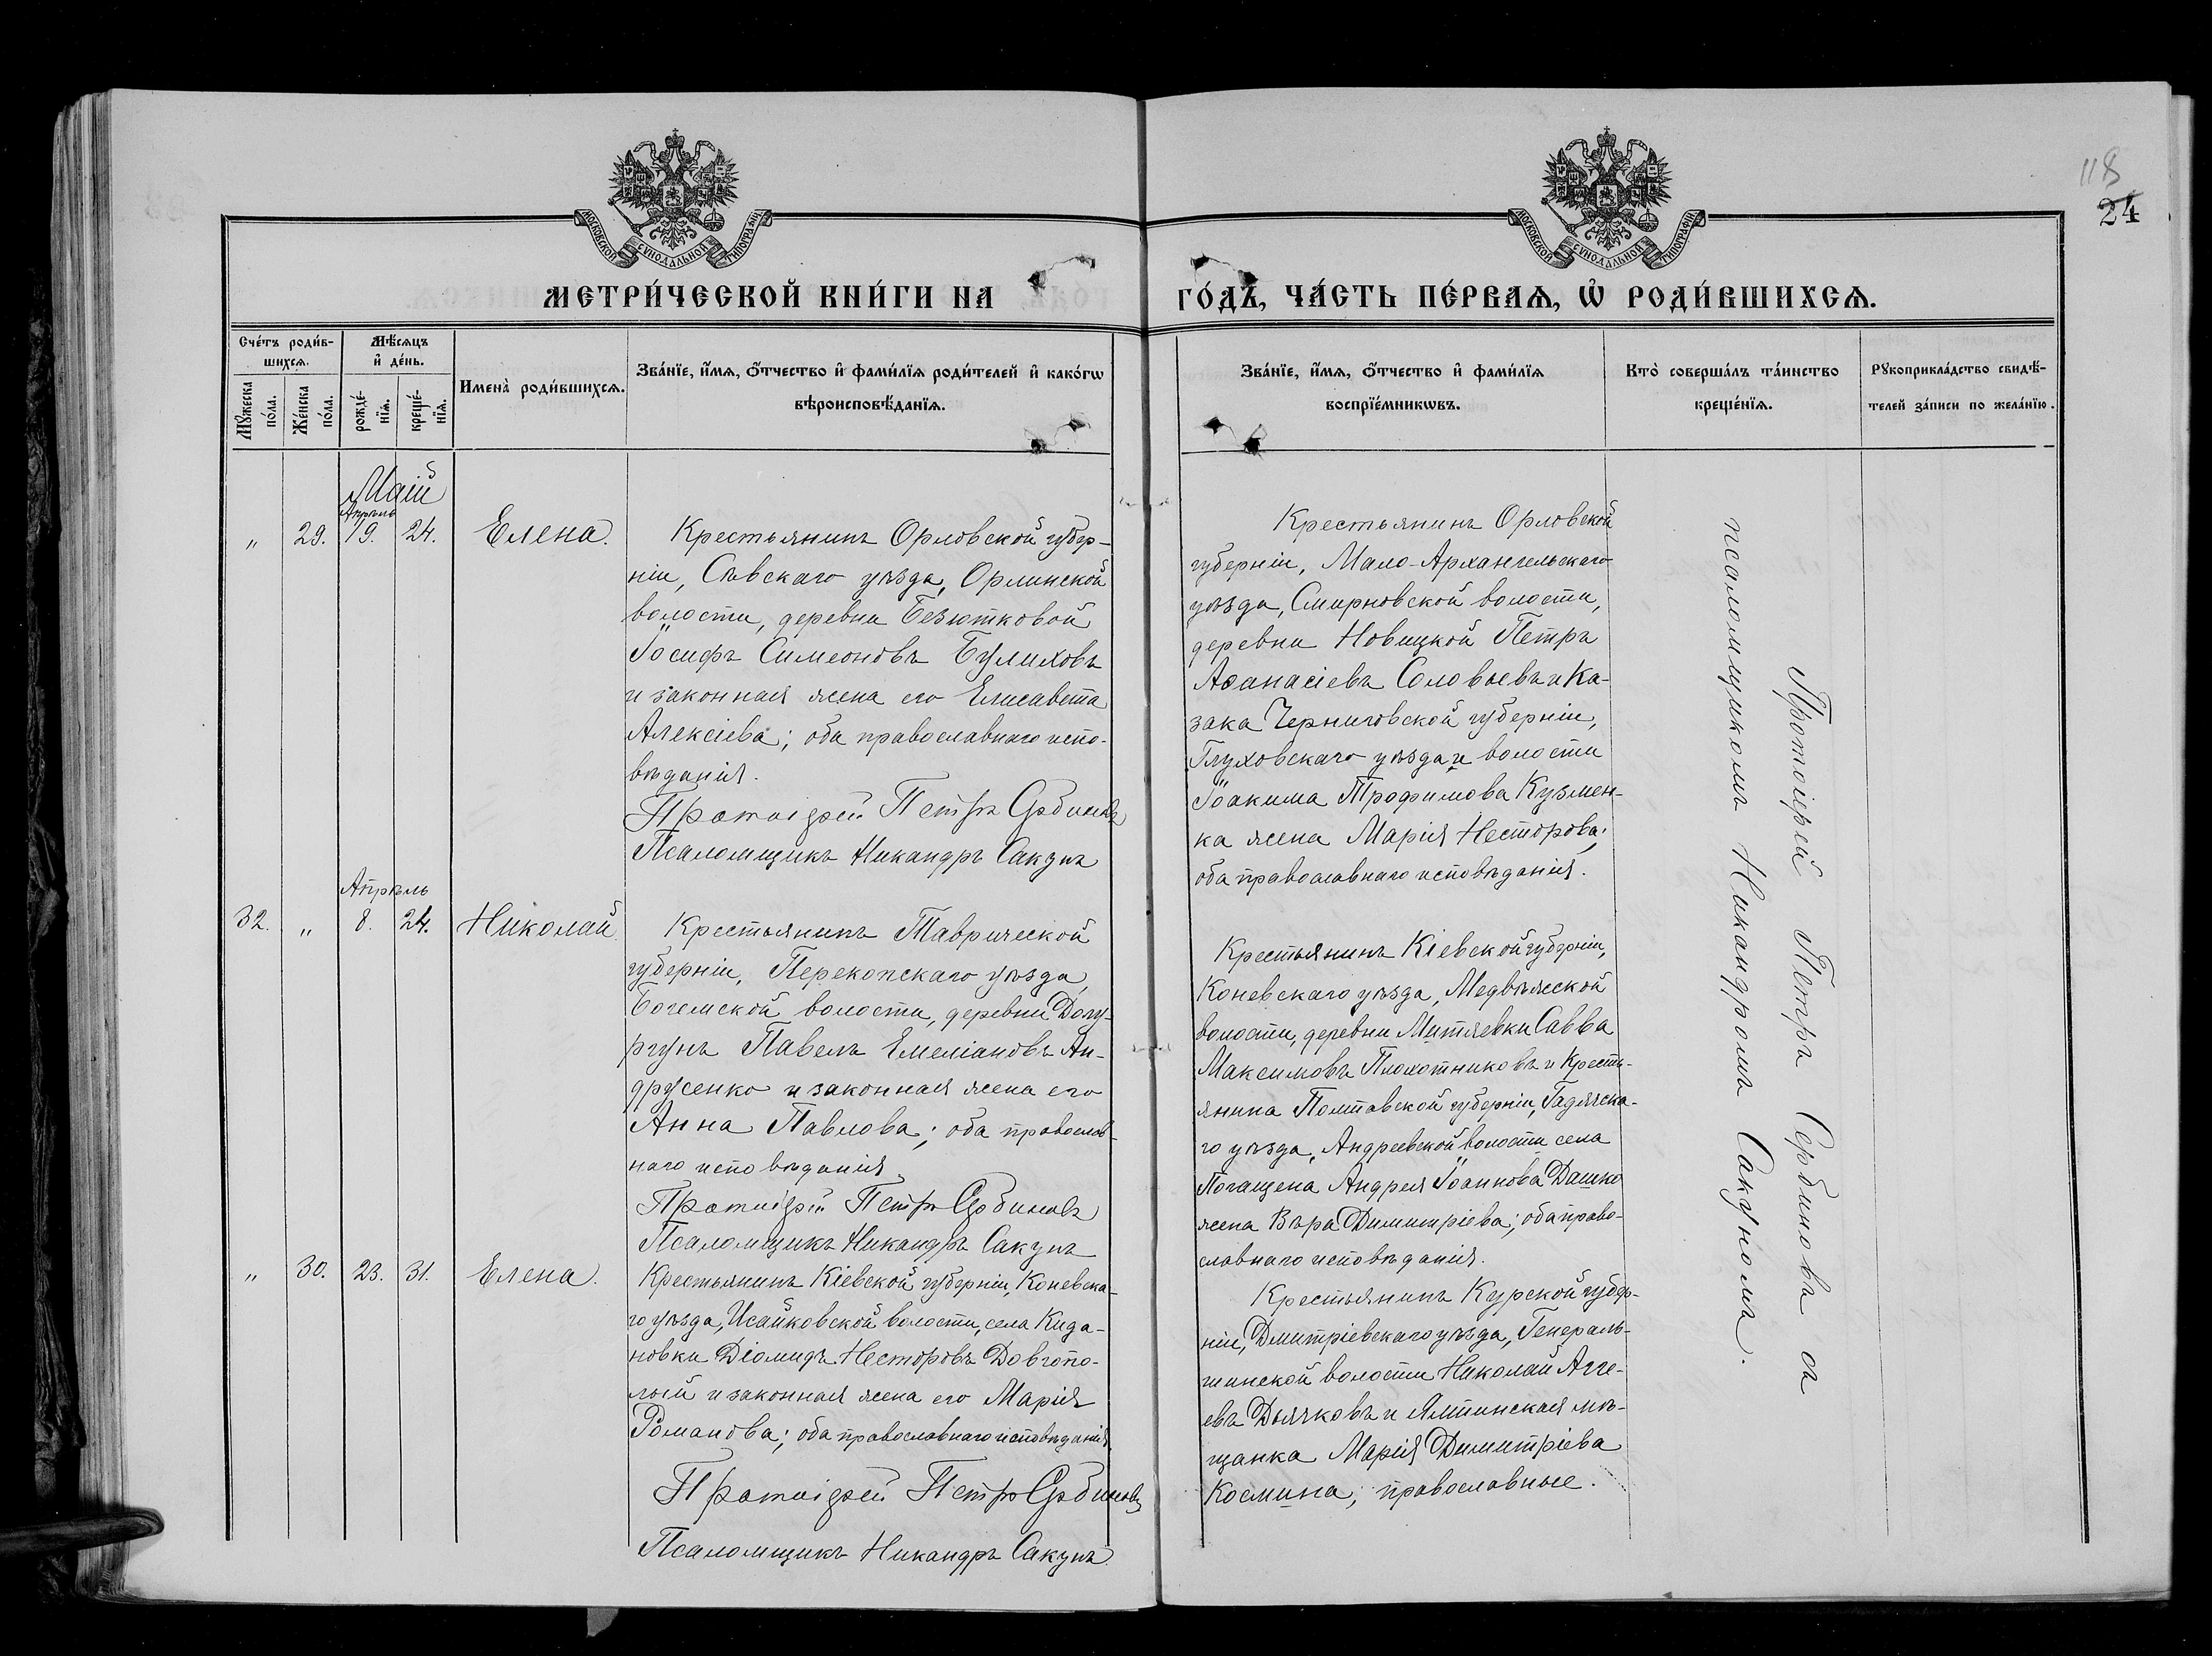 118
24
МОСКОВСКОЙ СѴНОДАЛЬНОЙ ТИПОГРАФІИ
МОСКОВСКОЙ СѴНОДАЛЬНОЙ ТИПОГРАФІИ
МЕТРИ́ЧЕСКОЙ КНИ́ГИ НА
ГО́ДЪ, ЧА́СТЬ ПЕ́РВАѦ, Ѡ҆ РОДИ́ВШИХСѦ.
Сче́тъ роди́в-
шихсѧ.
Мꙋ́жеска
по́ла.
Же́нска
по́ла.
Мѣ́сѧцъ
и҆ де́нь.
рожде́-
нїѧ.
креще́-
нїѧ.
Имена̀ роди́вшихсѧ.
Зва́нїе, и҆́мѧ, ѻ҆́тчество и҆ фами́лїѧ роди́телей и҆ како́гѡ
вѣроисповѣ́данїѧ.
Зва́нїе, и҆́мѧ, ѻ҆́тчество и҆ фами́лїѧ
воспрїе́мникѡвъ.
Кто̀ соверша́лъ та́инство
креще́нїѧ.
Рꙋкоприкла́дство свидѣ́-
телей за́писи по жела́нїю.
Май
Апрѣль
„ 29. 19. 24. Елена.
Крестьянинъ Орловской губер-
ніи, Сѣвскаго уѣзда, Орлинской
волости, деревни Безютковой
Іосифъ Симеоновъ Булиховъ
и законная жена его Елисавета
Алексіева; оба православнаго испо-
вѣданія.
Протоіерей Петръ Сербиновъ
Псаломщикъ Никандръ Сакунъ
Крестьянинъ Орловской
губерніи, Мало-Архангельскаго
уѣзда, Смирновской волости,
деревни Новицкой Петръ
Аѳанасіевъ Соловьевъ и Ка-
зака Черниговской губерніи,
Глуховскаго уѣзда и волости
Іоакима Трофимова Кузмен-
ка жена Марія Несторова;
оба православнаго исповѣданія.
Апрѣль
32. „ 8. 24. Николай.
Крестьянинъ Таврической
губерніи, Перекопскаго уѣзда,
Богемской волости, деревни Догу-
ргунъ Павелъ Емеліановъ Ан-
друсенко и законная жена его
Анна Павлова; оба православ-
наго исповѣданія.
Протоіерей Петръ Сербиновъ
Псаломщикъ Никандръ Сакунъ
Крестьянинъ Кіевской губерніи,
Коневскаго уѣзда, Медвѣжской
волости, деревни Митяевки Савва
Максимовъ Плохотниковъ и кресть-
янина Полтавской губерніи, Гадячска-
го уѣзда, Андреевской волости села
Погащена Андрея Іоаннова Дашко
жена Вѣра Димитріева; оба право-
славнаго исповѣданія.
„ 30. 23. 31. Елена.
Крестьянинъ Кіевской губерніи, Коневска-
го уѣзда, Исайковской волости, села Кида-
новки Діомидъ Несторовъ Довгопо-
лый и законная жена его Марія
Романова; оба православнаго исповѣданія.
Протоіерей Петръ Сербиновъ
Псаломщикъ Никандръ Сакунъ
Крестьянинъ Курской губер-
ніи, Дмитріевскаго уѣзда, Генераль-
шинской волости Николай Агге-
евъ Дьячковъ и Ялтинская мѣ-
щанка Марія Димитріева
Космина, православные.
Протоіерей Петръ Сербиновъ съ
псаломщикомъ Никандромъ Сакуномъ.